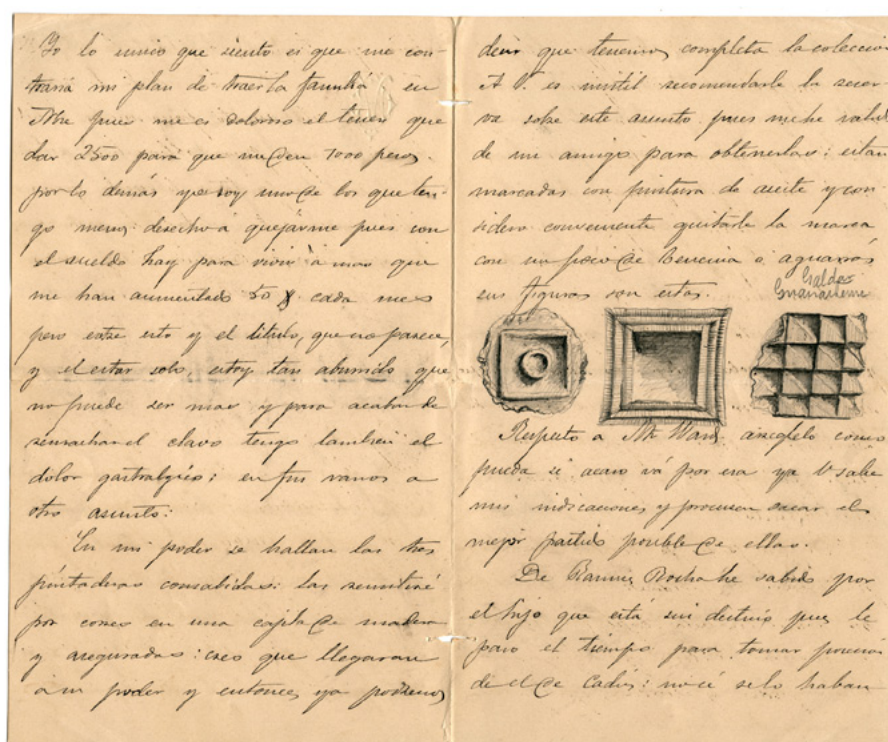 Yo lo unico que siento es que me con-
traria mi plan de traer la familia en
pues me es doloroso el tener que
dar 2500 para que me den 1000 pesos.
por lo demás yo soy uno de los que ten-
go menos derecho á quejarme pues con
el sueldo hay para vivir á mas que
me han aumentado 50 $ cada mes
pero entre esto y el titulo, que no parece,
y el estar solo, estoy tan aburrido que
no puede ser mas y para acabar de
remachar el clavo tengo tambien el
dolor gastralgico; en fin vamos a
otro asunto:
En mi poder se hallan las tres
pintaderas consabidas: las remitiré
por correo en una cajita de madera
y aseguradas: creo que llegaran
a su poder y entonces ya podremos
decir que tenemos completa la coleccion
A V. es inutil recomendarle la reser-
va sobre este asunto pues me he valido
de un amigo para obtenerlas: estan
marcadas con pintura de aceite y con-
sidero conveniente quitarle la marca
con un poco de bencina o aguarrás
sus figuras son estas.
Galdar
Respecto a Mr Ward arreglelo como
pueda si acaso vá por esa ya V sabe
mis indicaciones y procuren sacar el
mejor partido posible de ellas.
De Ramirez Rocha he sabido por
el hijo que está sin destino pues le
paso el tiempo para tomar posesion
de el de Cadiz: no sé si lo habran